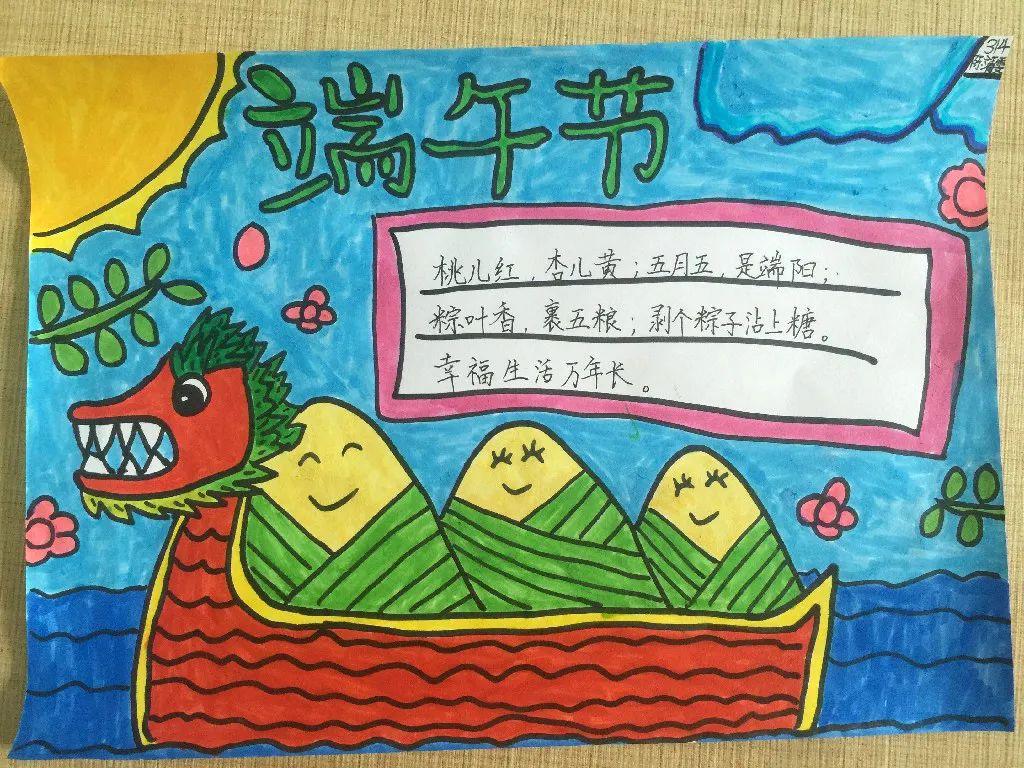 端午节
314
桃儿红，杏儿黄；五月五，是端阳；
粽叶香，裹五粮；剥个粽子沾上糖。
幸福生活万年长。